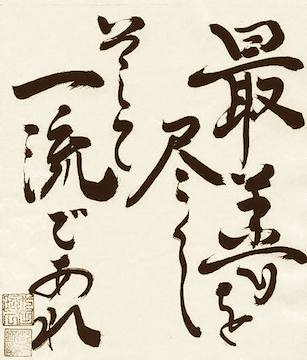 最善を
尽くし
そして
一流であれ